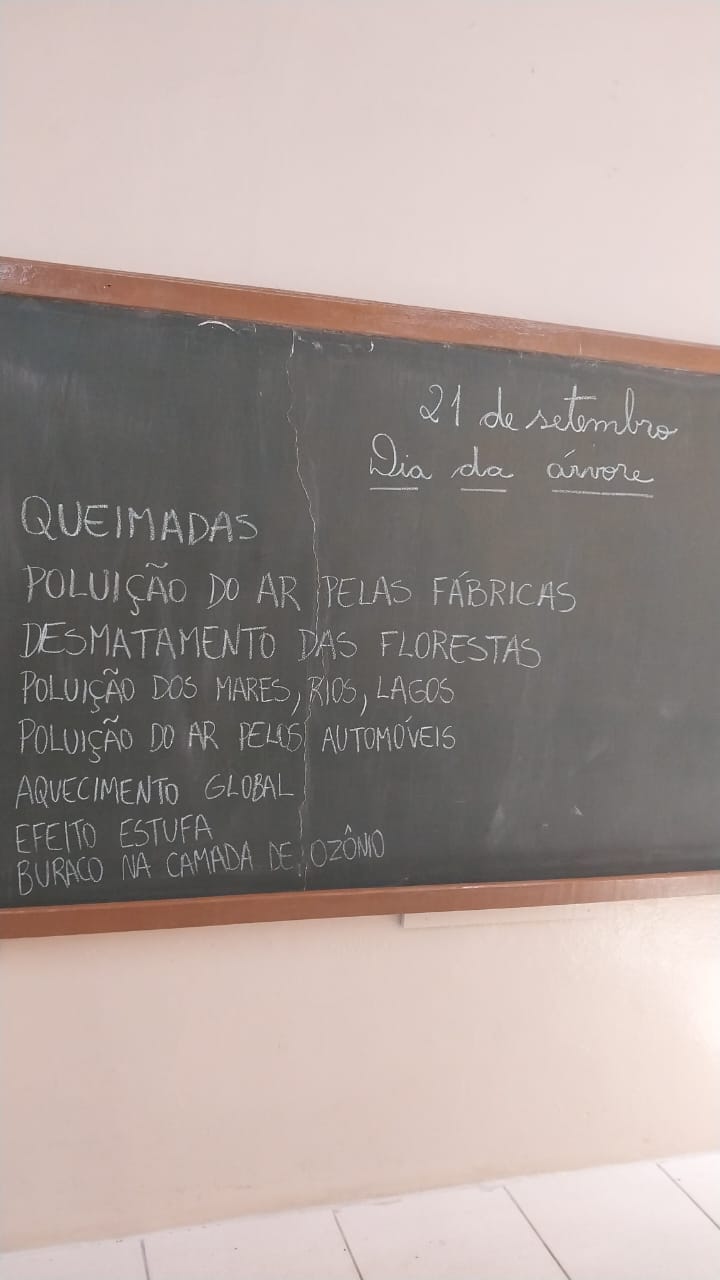 21 de setembro
Dia da árvore
QUEIMADAS
POLUIÇÃO DO AR PELAS FÁBRICAS
DESMATAMENTO DAS FLORESTAS
POLUIÇÃO DOS MARES, RIOS, LAGOS
POLUIÇÃO DO AR PELOS AUTOMÓVEIS
AQUECIMENTO GLOBAL
EFEITO ESTUFA
BURACO NA CAMADA DE OZÔNIO